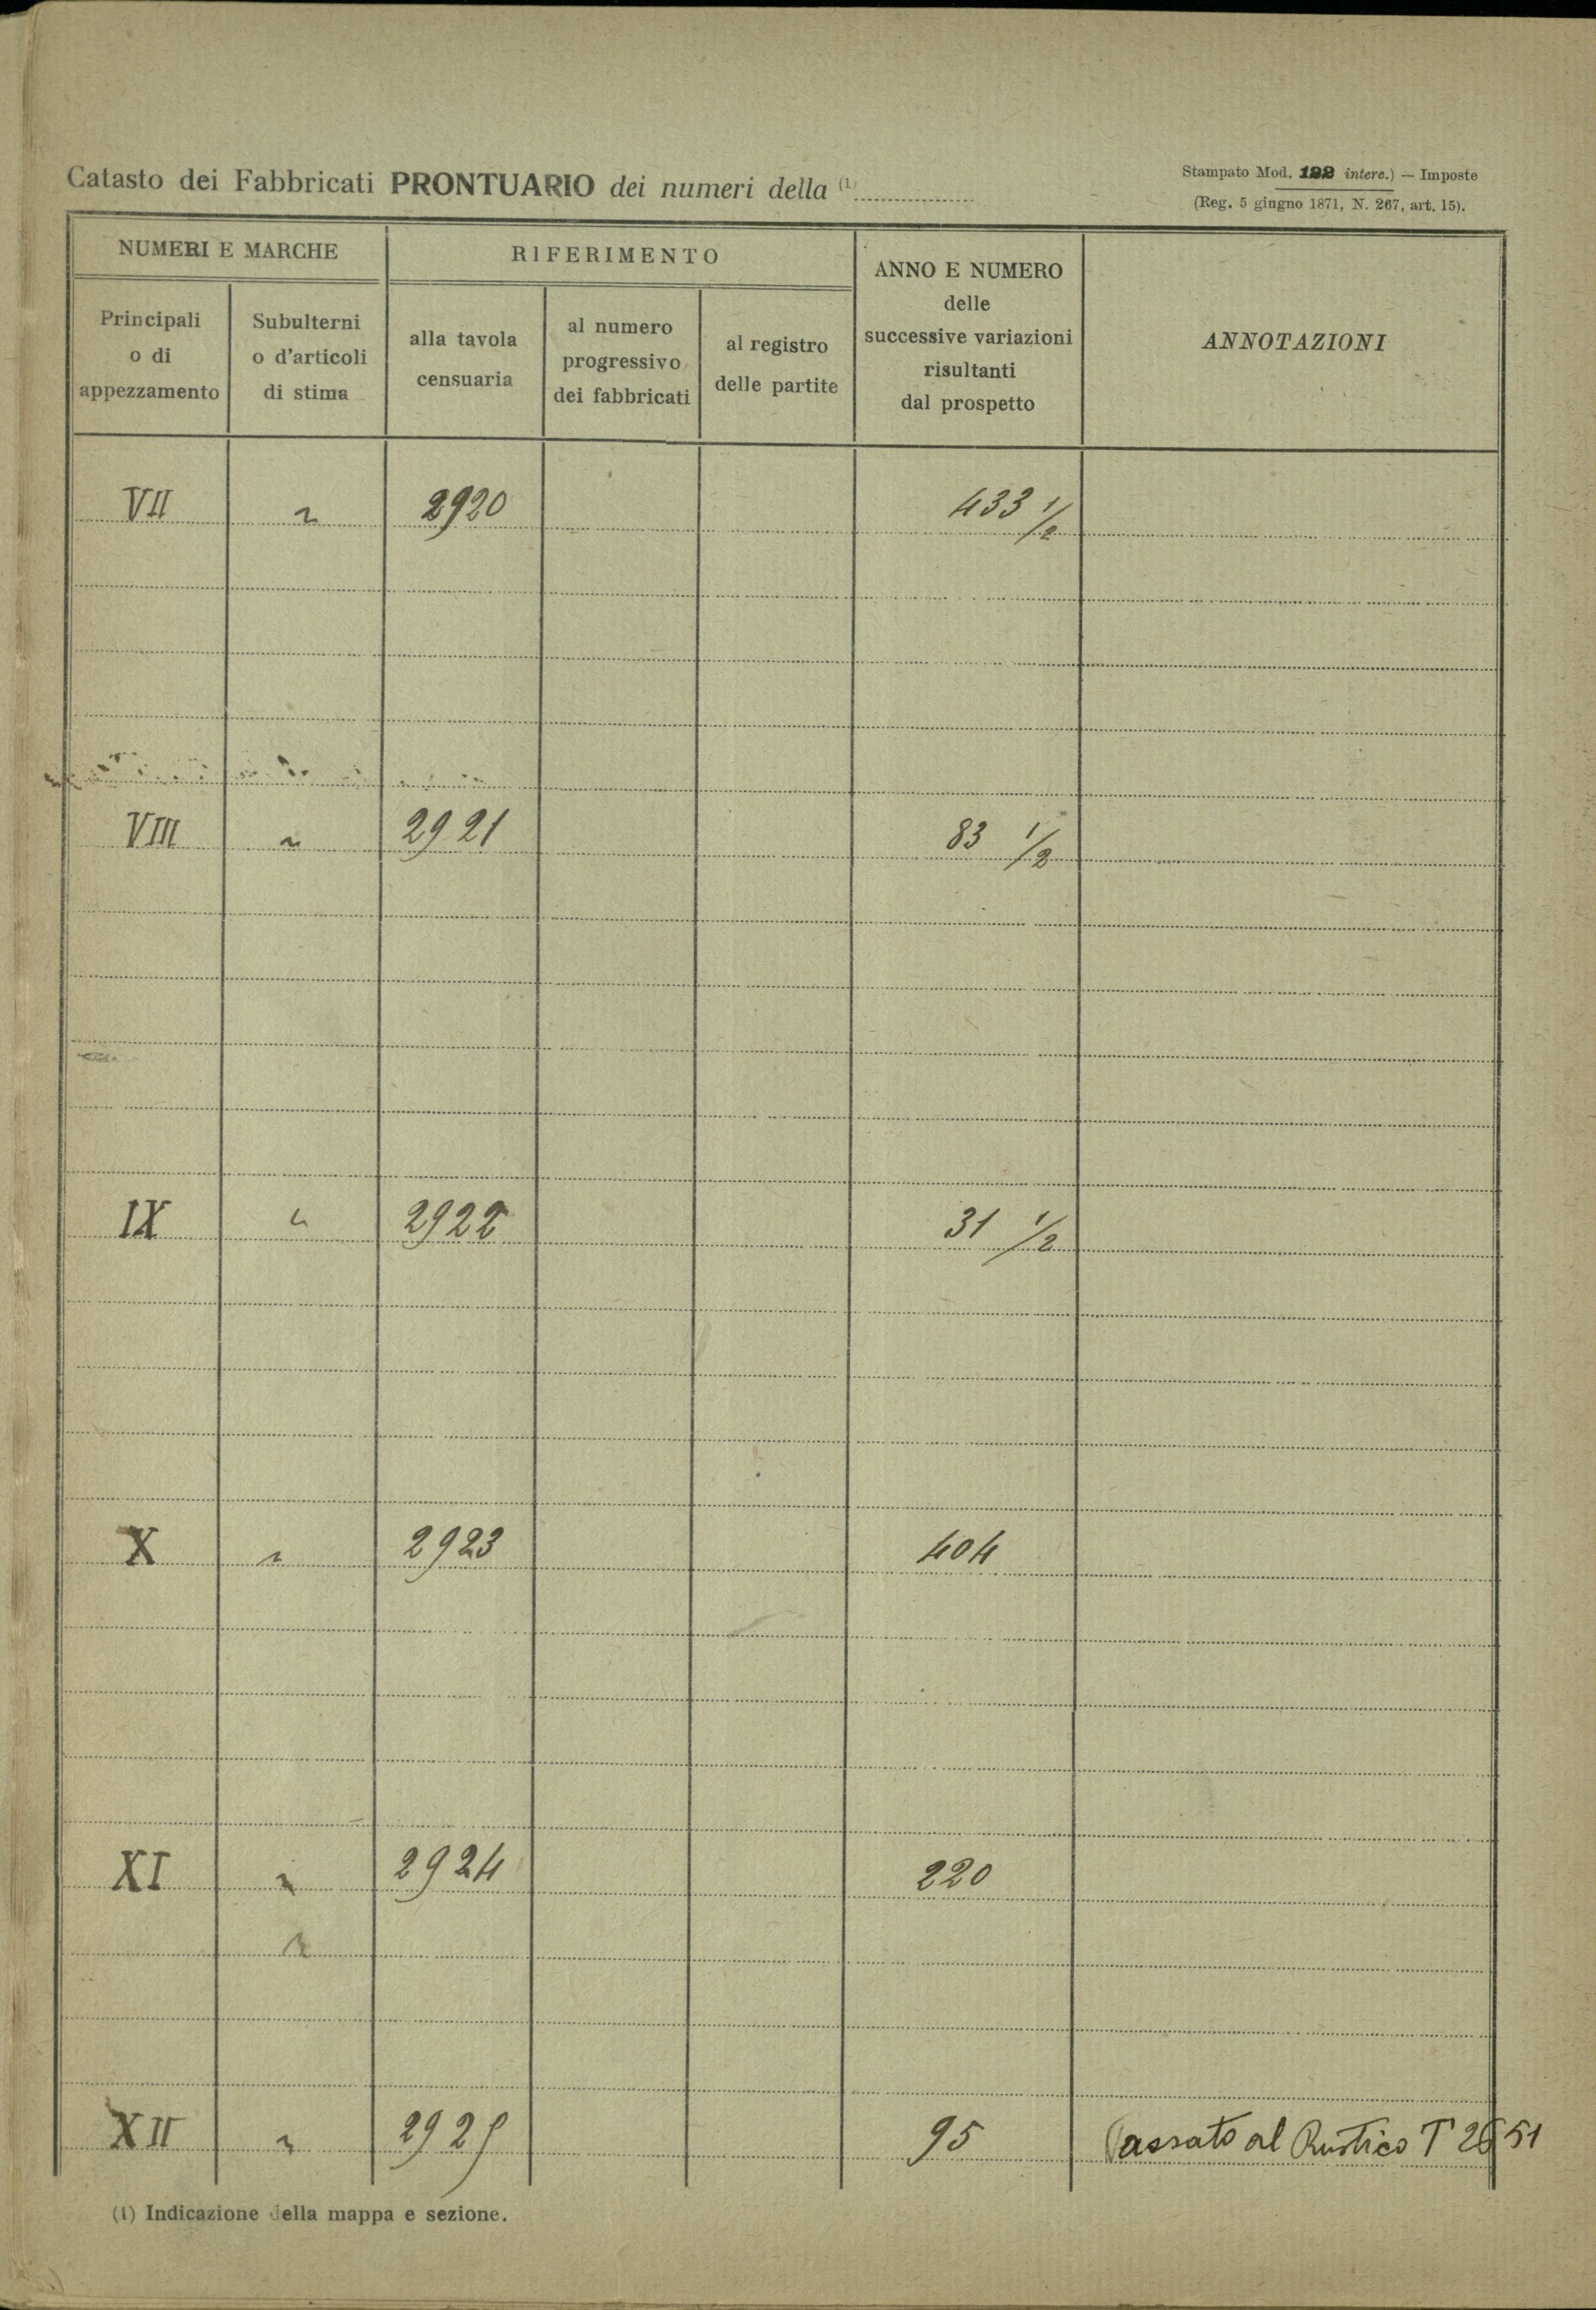 Catasto dei Fabbricati PRONTUARIO dei numeri della (1)
Stampato Mod. 122 interc.) — Imposte
(Reg. 5 giugno 1871, N. 267, art. 15).
NUMERI E MARCHE
RIFERIMENTO
ANNO E NUMERO
delle
successive variazioni
risultanti
dal prospetto
ANNOTAZIONI
Principali
o di
appezzamento
Subulterni
o d'articoli
di stima
alla tavola
censuaria
al numero
progressivo
dei fabbricati
al registro
delle partite
VII " 2920 433 1/2
VIII " 2921 83 1/2
IX " 2922 31 1/2
X " 2923 404
XI " 2924 220
"
XII " 2925 95 Passato al Rustico T 2651
(1) Indicazione della mappa e sezione.